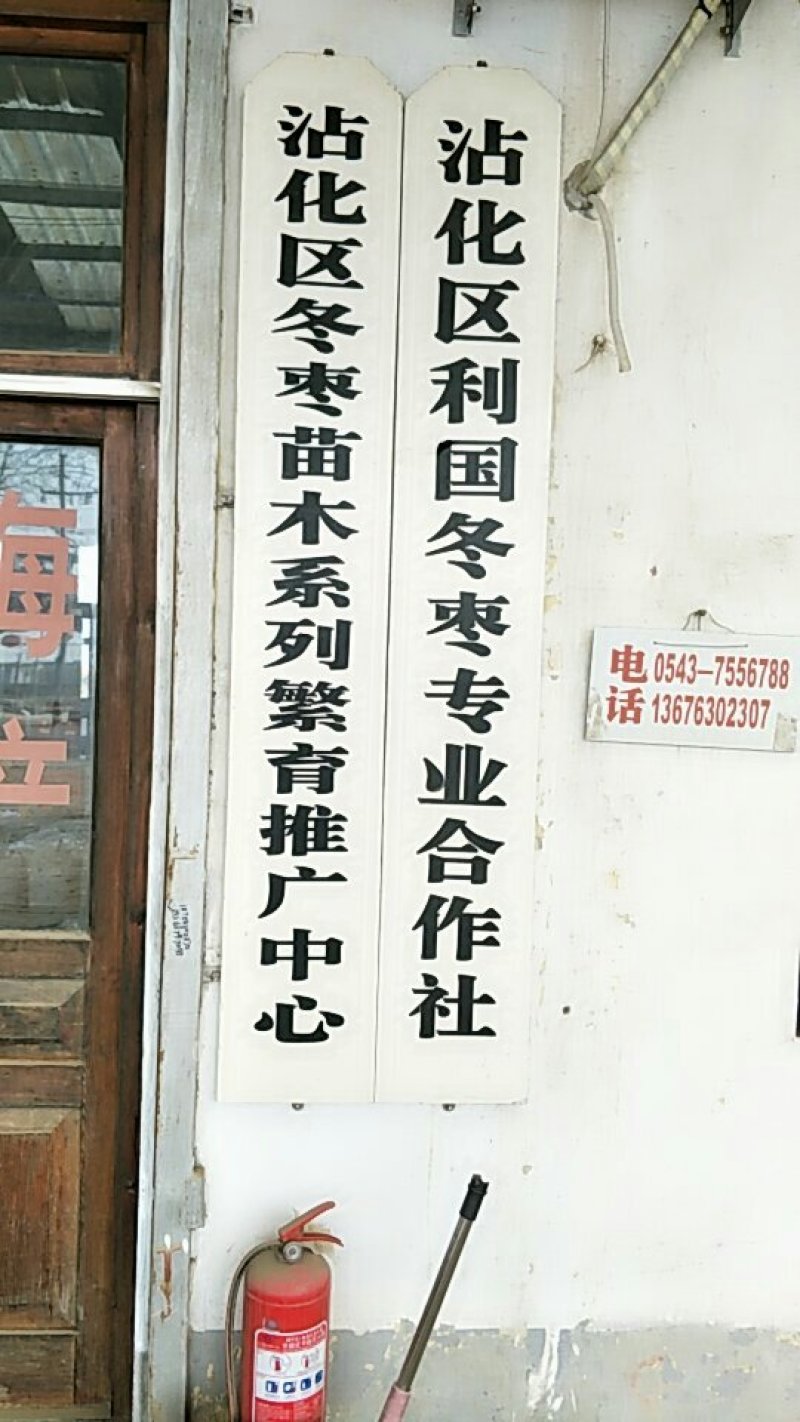 沾化区利国冬枣专业合作社
沾化区冬枣苗木系列繁育推广中心
电话 0543-7556788
13676302307
海
立